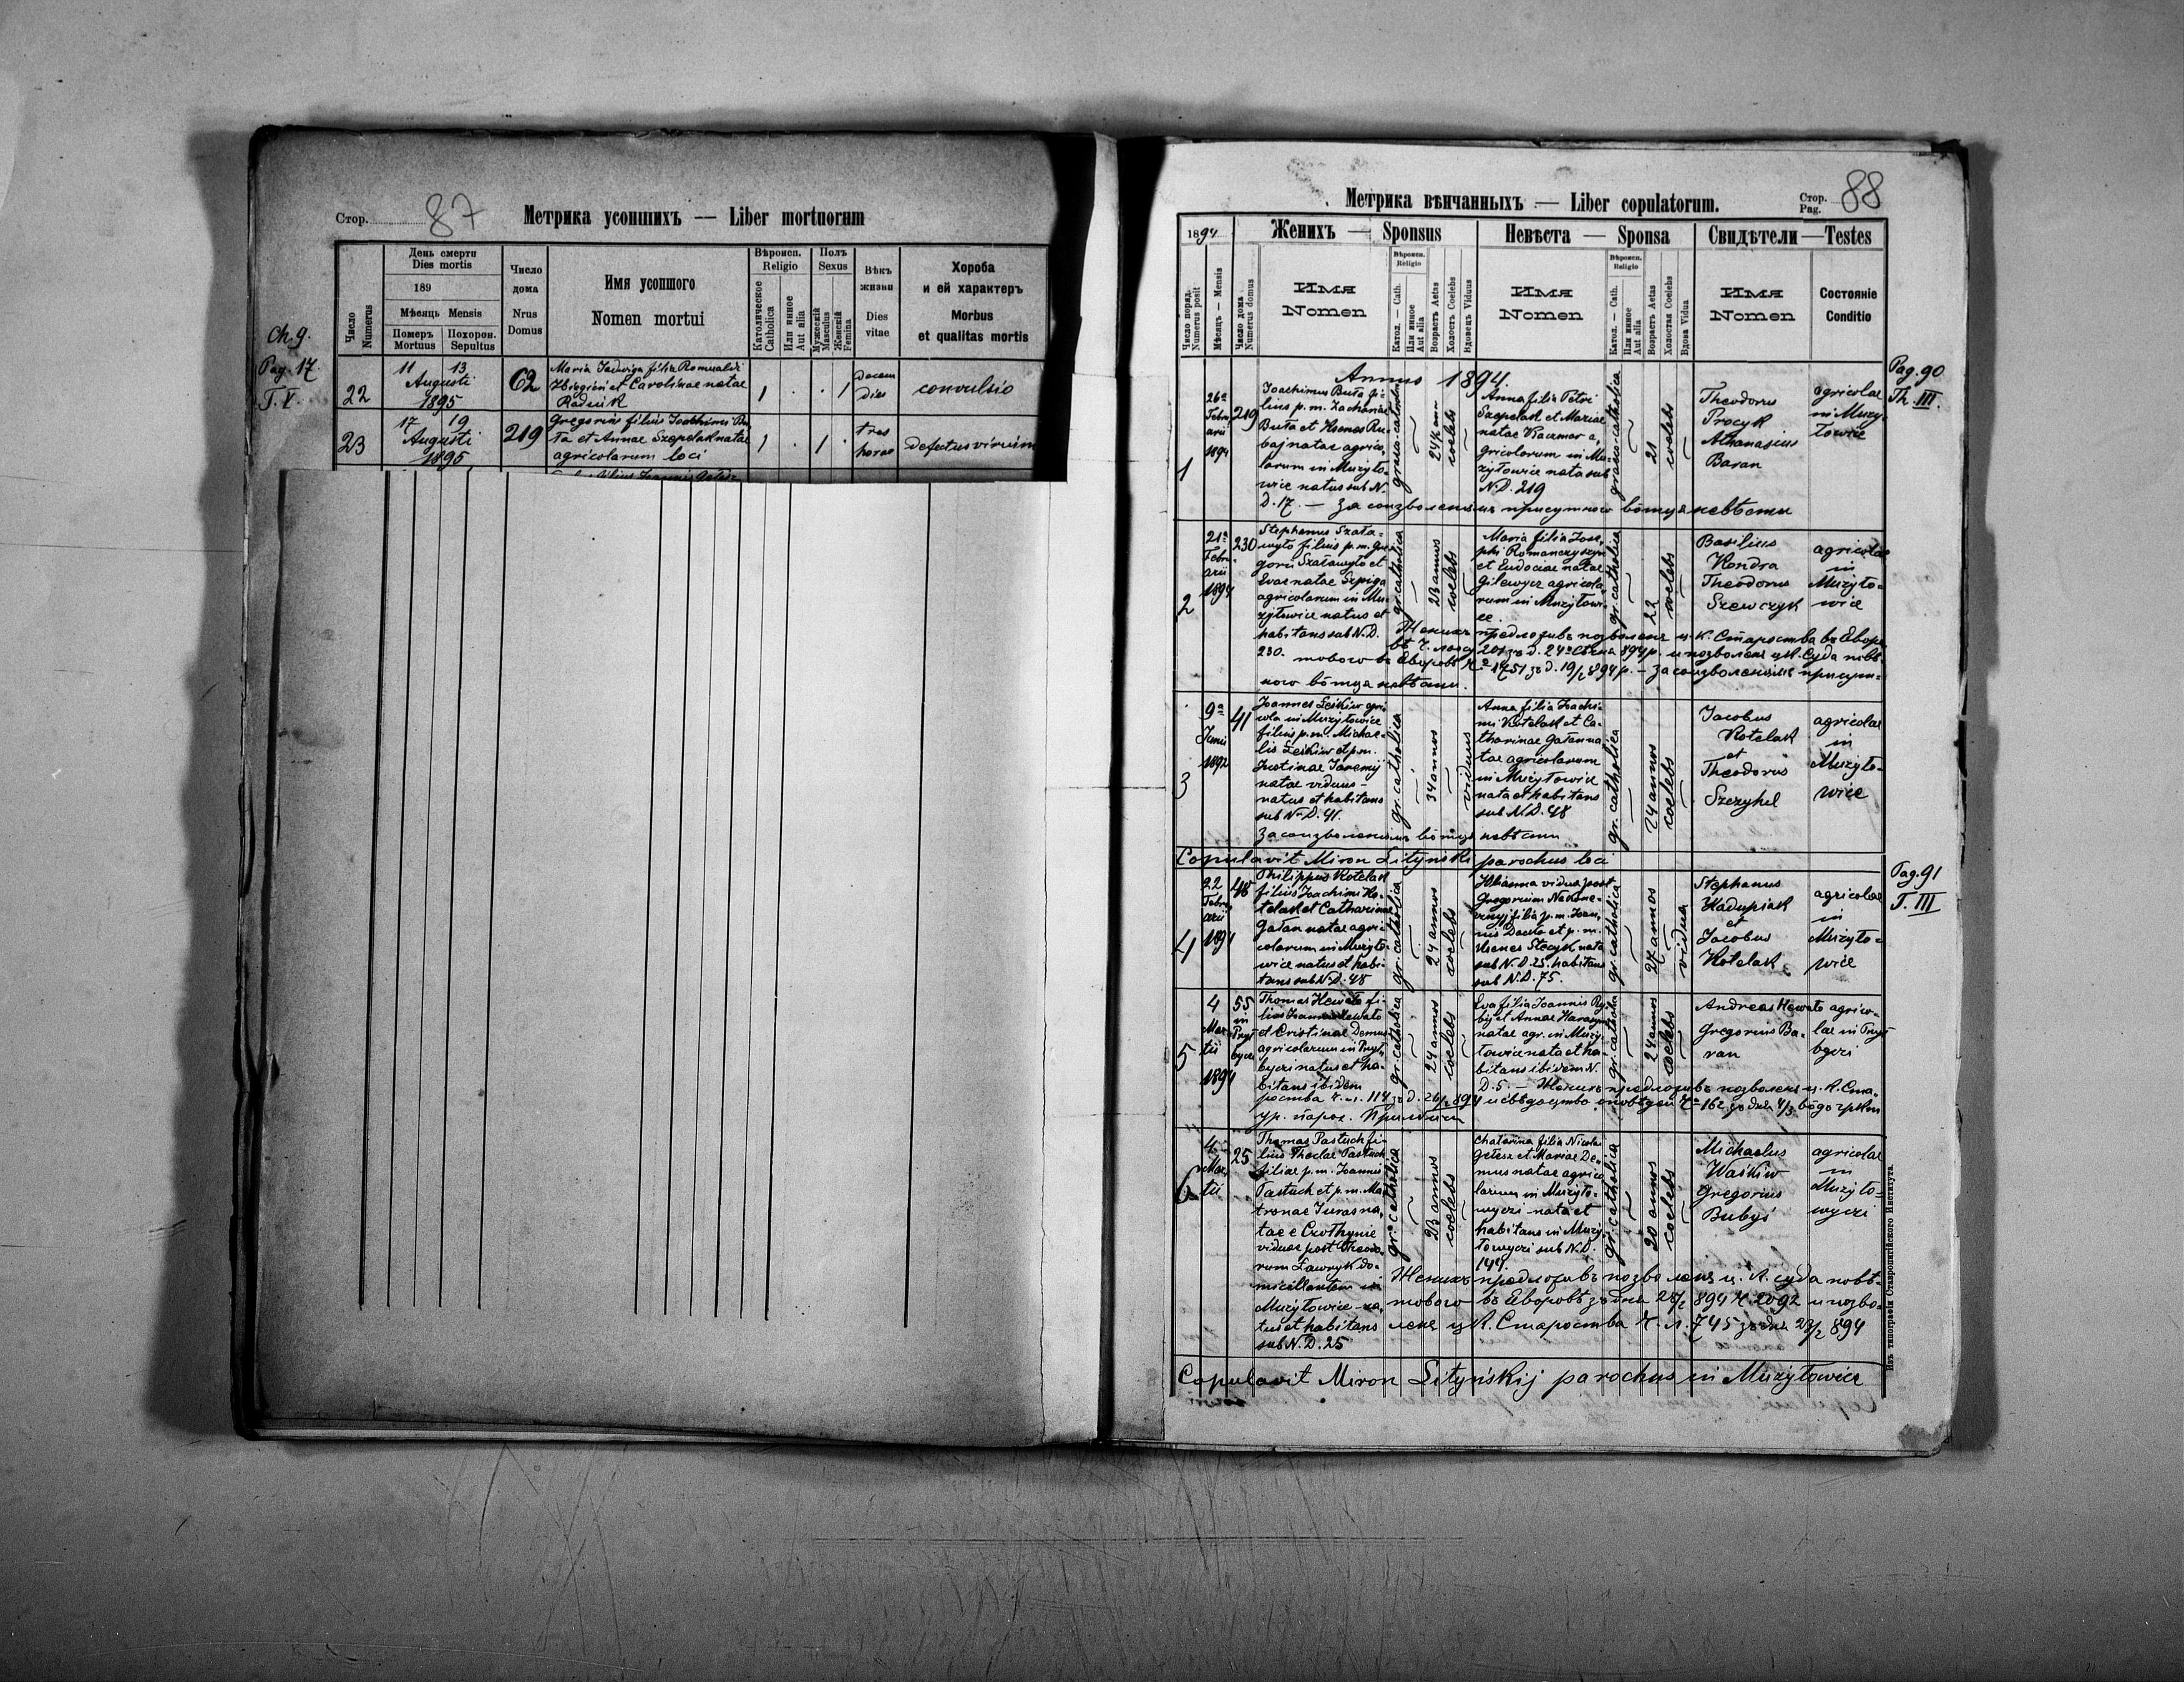 Стор. 87 Метрика усопшихъ — Liber mortuorum
Число Numerus
День смерти Dies mortis
189
Мѣсяць Mensis
Померъ Mortuus
Похорон. Sepultus
Число дома Nrus Domus
Имя усопшого
Nomen mortui
Вѣроисп. Religio
Католическое Catholica
Или инное Aut alia
Полъ Sexus
Мужескій Masculus
Женскій Femina
Вѣкъ жизни Dies vitae
Хороба и ей характеръ
Morbus et qualitas mortis
Ch. 9.
Pag. 17.
T. V.
22
11 13
Augusti
1895
62
Maria Jadwiga filia Romualdi
et Carolinae natae
Radnik
1 . . 1
decem
dies
convulsio
23
17 19
Augusti
1895
219
Gregorius filius Joachimi Bu-
ta et Annae Szepelak natae
agricolarum loci
1 . 1 .
tres
horae
defectus virium
Метрика вѣнчанныхъ — Liber copulatorum.
Стор. Pag. 88
1894
Женихъ — Sponsus
Невѣста — Sponsa
Свидѣтели — Testes
Число поряд. Numerus posit
Мѣсяцъ — Mensis
Число дома Numerus domus
Имя Nomen
Вѣроисп. Religio
Катол. — Cath.
Или инное Aut alia
Возрастъ Aetas
Холостъ Coelebs
Вдовецъ Viduus
Имя Nomen
Вѣроисп. Religio
Катол. — Cath.
Или инное Aut alia
Возрастъ Aetas
Холостая Coelebs
Вдова Vidua
Имя Nomen
Состояніе Conditio
Annus 1894.
Pag. 90
Th. III.
1
26a
Febru
arii
1894
219
Joachimus Buta fi-
lius p. m. Zachariae
Buta et Xenae Ru-
baj natae agrico-
larum in Muzyło-
wice natus sub N.
D. 17. — За соизволеніемъ присутного вôтця невѣсты
graeco-catholica
24½ ann
coelebs
Anna filia Petri
Szepelak et Mariae
natae Kaczmar a-
gricolarum in Mu-
zyłowice nata sub
N.D. 219
graeco-catholica
21
coelebs
Theodorus
Procyk
Athanasius
Baran
agricolae
in Muzy-
łowice
2
21a
Febru
arii
1894
230
Stephanus Szała-
wyło filius p. m. Gre-
gorii Szaławyło et
Evae natae Szpiga
agricolarum in Mu-
zyłowice natus et
habitans sub N.D.
230.
gr. catholica
23 annos
coelebs
Maria filia Jose-
phi Romanczyszyn
et Eudociae natae
Gilewycz agricola-
rum in Muzyłowi-
ce.
gr. catholica
22
coelebs
Basilius
Kondra
Theodorus
Szewczyk
agricolae
in
Muzyło-
wice
Женихъ предложивъ позволеніе ц. к. Староства въ Яворо-
ного вôтця невѣсты.
3
9a
Junii
1892
41
Joannes Leśkiw agri-
cola in Muzyłowice
filius p. m. Michae-
lis Leśkiw et p. m.
Justinae Jaremij
natae viduus —
natus et habitans
sub N. D. 41.
За соизволеніемъ вôтця невѣсты
gr. catholica
34 annos
viduus
Anna filia Joachi-
mi Kotelak et Ca-
tharinae Gałan na-
tae agricolarum
in Muzyłowice
nata et habitans
sub N.D. 48
gr. catholica
24 annos
coelebs
Jacobus
Kotelak
et
Theodorus
Szczyhel
agricolae
in
Muzyło-
wice
Copulavit Miron Lityński parochus loci
Pag. 91
T. III
4
22
Febru
arii
1894
48
Philippus Kotelak
filius Joachimi Ko-
telak et Catharinae
Gałan natae agri-
colarum in Muzyło-
wice natus et habi-
tans sub N.D. 48
gr. catholica
24 annos
coelebs
Julianna vidua post
Gregorium Nakone-
cznyj filia p. m. Joan-
nis et p. m.
Xenes Stecyk nata
sub N.D. 25. habitans
sub N.D. 75.
gr. catholica
27 annos
vidua
Stephanus
Kadupiak
et
Jacobus
Kotelak
agricolae
in
Muzyło-
wice
5
4
Mar-
tii
1894
55
in
Prył-
byczi
Thomas Hewało fi-
lius Joannis Hewało
et Cristinae Demus
agricolarum in Prył-
byczi natus et ha-
bitans ibidem
gr. catholica
24 annos
coelebs
Eva filia Joannis Ry-
bij et Annae Harasym
natae agr. in Muzy-
łowice nata et ha-
bitans ibidem N.
D. 5. — Женихъ предложивъ позволеніе ц. к. Ста-
gr. catholica
24 annos
coelebs
Andreas Hewało agrico-
Gregorius Ba- lae in Prył-
ran byczi
6
4
Mar-
tii
25
Thomas Pastuch fi-
lius Theclae Pastuch
filiae p. m. Joannis
Pastuch et p. m. Ma-
tronae Juras na-
tae e
viduae post Theodo-
rum Ławryk do-
micillantem in
Muzyłowice na-
tus et habitans
sub N. D. 25
gr. catholica
23 annos
coelebs
Chatarina filia Nicolai
Gełesz et Mariae De-
mus natae agrico-
larum in Muzyło-
wyczi nata et
habitans in Muzy-
łowyczi sub N.D.
144.
gr. catholica
20 annos
coelebs
Michaelus
Waśkiw
Gregorius
Bubyś
agricolae
in
Muzyło-
wyczi
Женихъ предложивъ позволеніе ц. к. суда повѣ-
тового въ Яворовѣ зъ дня 28/2 894 Ч. 2092 и позво-
леніе ц. к. Староства Ч. л. 745 зъ дня 23/2 894
Copulavit Miron Lityńskij parochus in Muzyłowice
Изъ типографіи Ставропигійского Института.